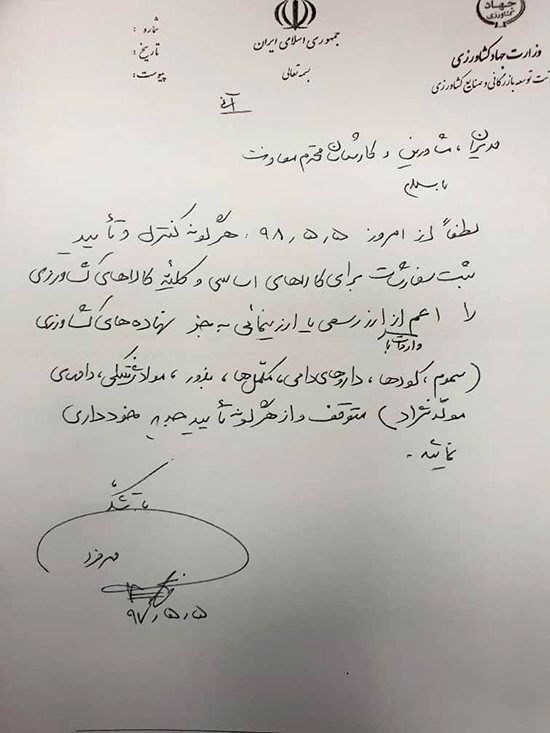 جهاد
کشاورزی
جمهوری اسلامی ایران
بسمه تعالی
وزارت جهاد کشاورزی
نت توسعه بازرگانی و صنایع کشاورزی
شماره :
تاریخ :
پیوست :
آنی
مدیران، مشاورین و کارشناسان محترم معاونت
با سلام
لطفاً از امروز ۹۸٫۵٫۵، هرگونه کنترل و تأیید
ثبت سفارشات برای کالاهای اساسی و کلیه کالاهای کشاورزی
را اعم از ارز رسمی یا ارز نیمائی به جز نهاده‌های کشاورزی
واردات با
(سموم، کودها، داروهای دامی، مکمل‌ها، بذور، مواد ژنتیکی، دامهای
مولد نژاد) متوقف و از هرگونه تأیید جدید خودداری
نمائید.
با تشکر
مهرفرد
۹۷٫۵٫۵